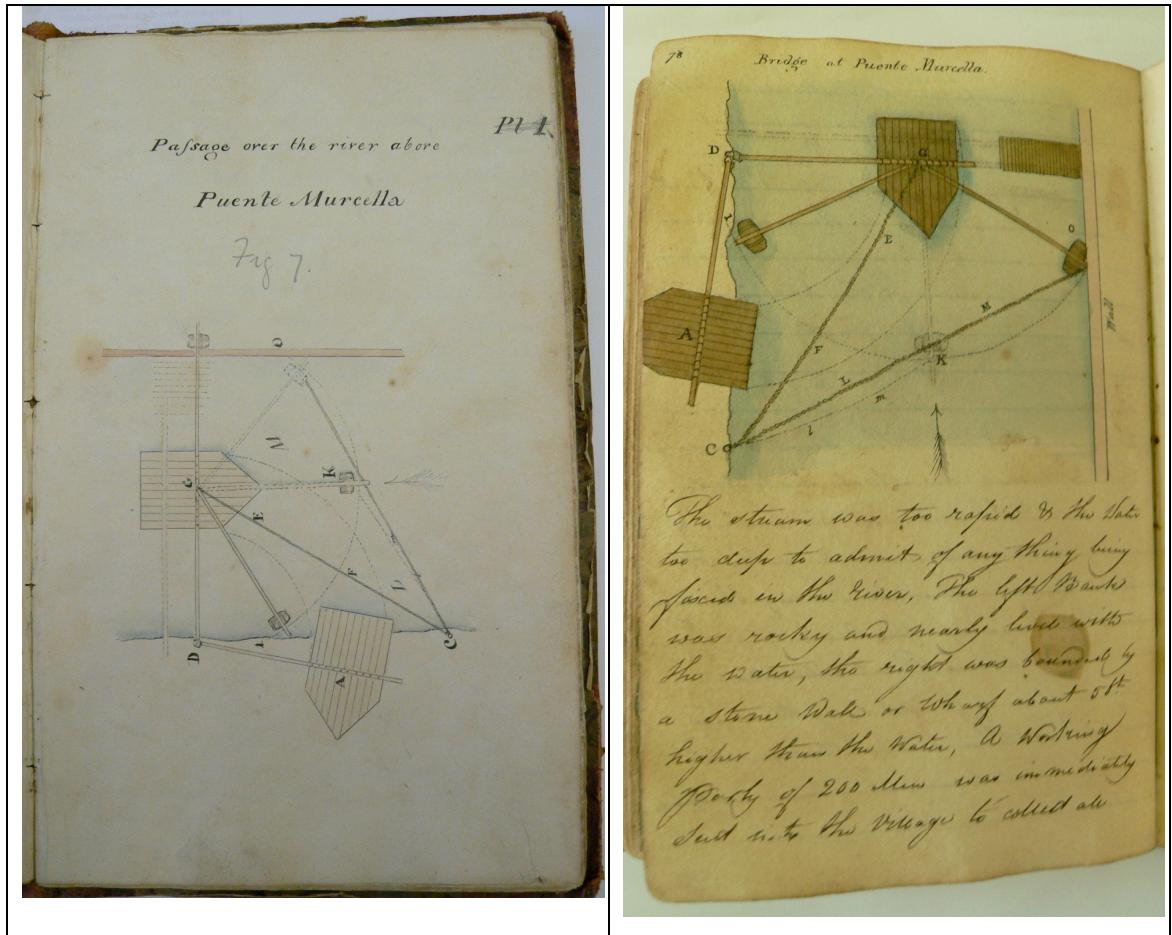 Pl 1
Paſsage over the river above
Puente Murcella
Fig 7.
O
M
G
K
E
F
L
D
I
A
C
78
Bridge at Puente Murcella.
D
G
I
E
O
A
F
M
K
L
m
C
l
Wall
The stream was too rapid & the Water
too deep to admit of any thing being
fixed in the River, The left Bank
was rocky and nearly level with
the water, the right was bounded by
a stone Wall or Wharf about 5ft
higher than the Water, A Working
Party of 200 Men was immediately
sent into the Village to collect all